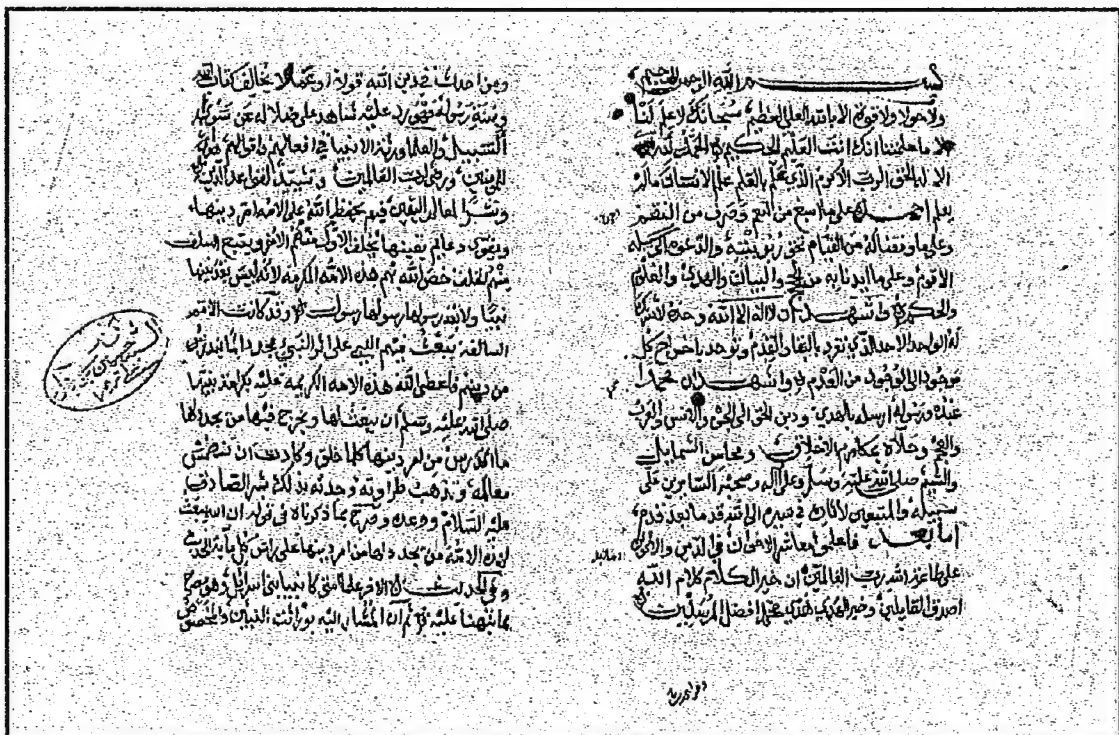 بسم الله الرحمن الرحيم
ولا حول ولا قوة الا بالله العلي العظيم سبحانك لا علم لنا
الا ما علمتنا انك انت العليم الحكيم الحمد لله
الاله الحق الرب الاكرم الذي علم بالقلم علم الانسان ما لم
يعلم احمده على ما اسبغ من النعم وصرف من النقم
وعلى ما وفقنا له من القيام بحق والدعوة الى سبيله
الاقوم وعلى ما ايدنا به من الحجج والبينات والهدى والعلم
والحكم واشهد ان لا اله الا الله وحده لا شريك
له الواحد الاحد الذي تفرد بالبقاء والقدم وتوحد باخراج كل
موجود الى الوجود من العدم واشهد ان محمدا
عبده ورسوله ارسله بالهدى ودين الحق الى الجن والانس والعرب
والعجم وحلاه بمكارم الاخلاق ومحاسن الشمايل
والشيم صلى الله عليه وسلم وعلى آله وصحبه السايرين على
سبيله والمتبعين لاثاره في سيرهم الى الله قدما بعد قدم
اما بعد فاعلموا معاشر الاخوان في الدين والاعوان
على طاعة الله رب العالمين ان خير الكلام كلام الله
اصدق القايلين وخير الهدي هدي محمد افضل المرسلين
ومن احدث في دين الله قولا او عملا لا يخالف كتاب الله
وسنة رسوله فهو رد عليه شاهد على ضلاله عن
السبيل والعلما ورثة الانبيا في افعالهم واقوالهم
ورضى لرب العالمين وتشييدا لقواعد الدين
ونشرا لمعالم اليقين فبهم يحفظ الله على الامة امر دينها
ويقوي دعايم يقينها يخلف الاول منهم الاخر ويتبع السلف
منهم الخلف خص الله بهم هذه الامة المكرمة لانه ليس بعد نبيها
نبيا ولا بعد رسولها رسولا وقد كانت الامم
السالفة يبعث فيهم النبي على اثر النبي مجددا لما اندرس
من دينهم فاعطى الله هذه الامة الكريمة عليه بركة نبيها
صلى الله عليه وسلم ان يبعث لها ويخرج فيها من يجدد لها
ما اندرس من امر دينها كلما خلق وكادت ان تنطمس
معالمه وتذهب طراوته وجدته بذلك بشر الصادق
عليه السلام ووعد وصرح بما ذكرناه في قوله ان الله يبعث
لهذه الامة من يجدد لها من امر دينها على راس كل ماية الحديث
وفي الحديث الاخر علما امتي كانبيا بني اسرائيل وهو
بما نبهنا عليه ثم ان المشار اليه